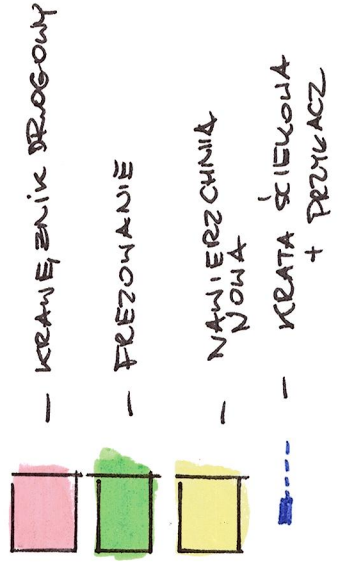 – KRAWĘŻNIK DROGOWY
– FREZOWANIE
– NAWIERZCHNIA
NOWA
– KRATA ŚCIEKOWA
+ PRZYKACZ